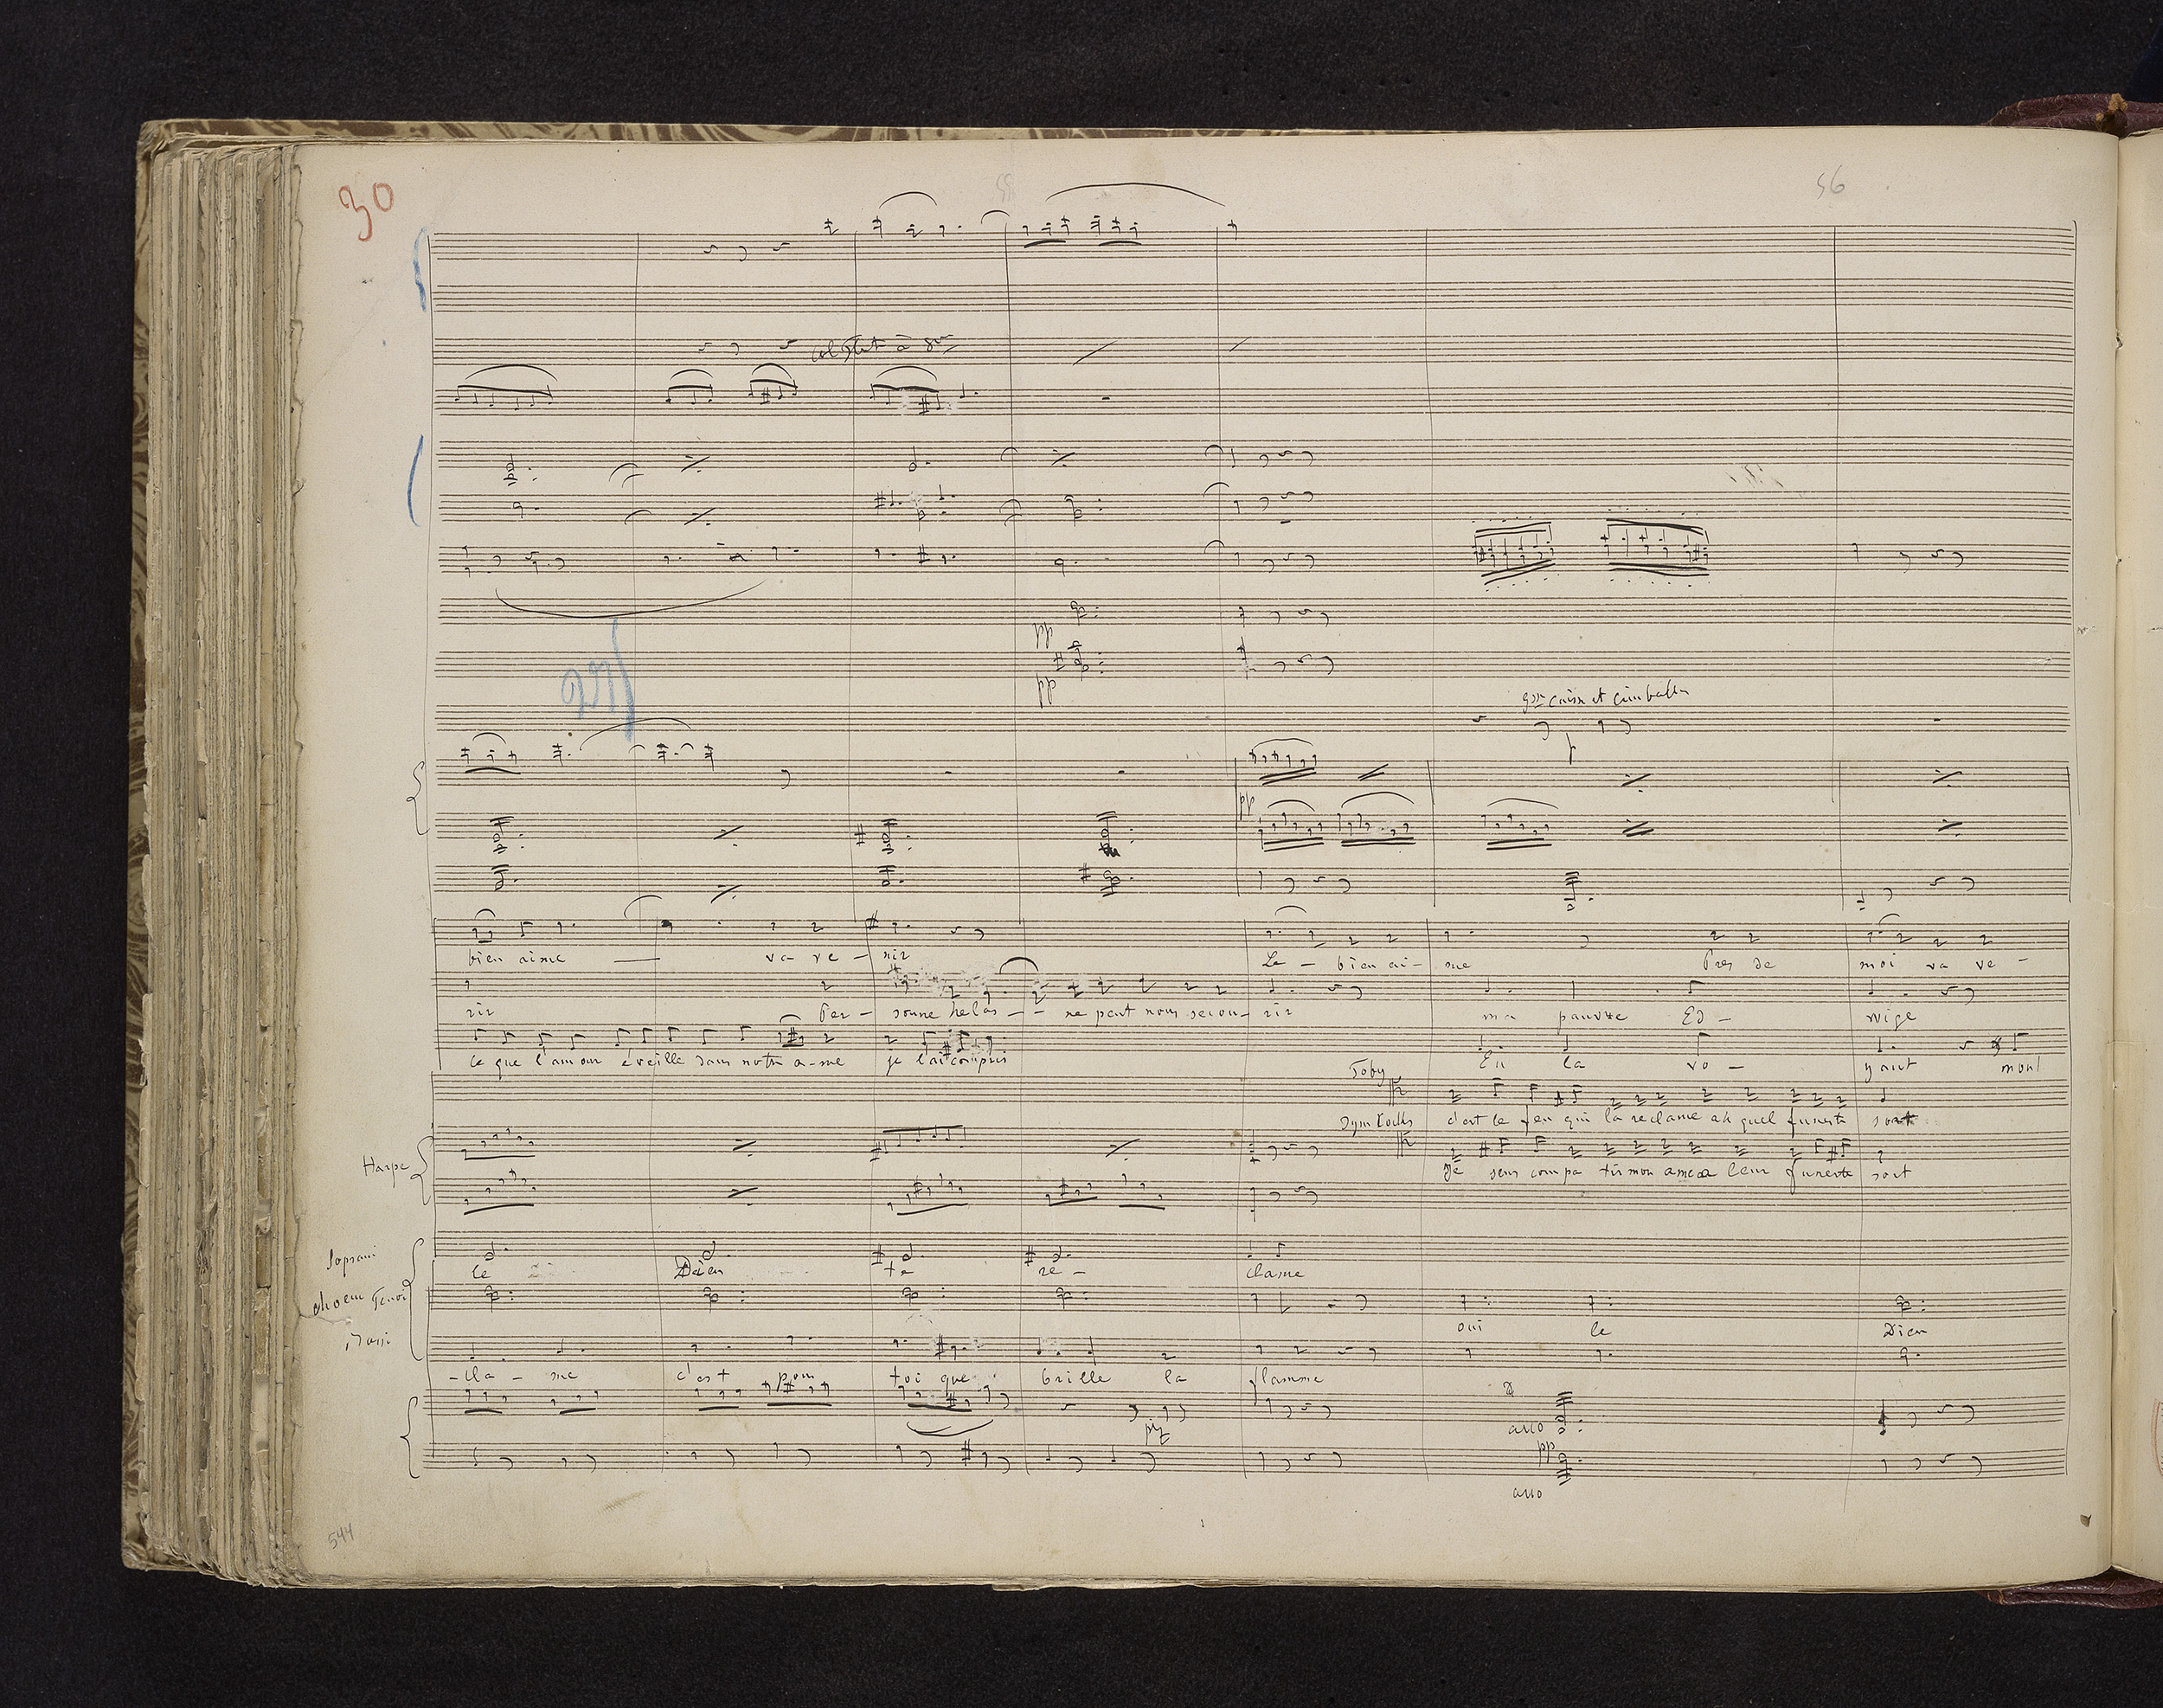 30
56
pp
pp
gsse caisse et cimballes
f
pp
bien aimé va ve - nir Le - bien ai - mé Pres de moi va ve -
rir Per - sonne helas - - ne peut nous secou - rir ma pauvre Ed - wige
ce que l'amour éveille dans notre a-me je l'ai compris En la vo - yant mon
Toby
c'est le feu qui la reclame ah quel funeste sort
je sens compa tir mon ame a leur funeste sort
Harpe
Soprani
le Dieu te re - clame
choeur Tenori
oui le Dieu
Bassi
- cla - me c'est pour toi que brille la flamme
arco
pp
arco
544